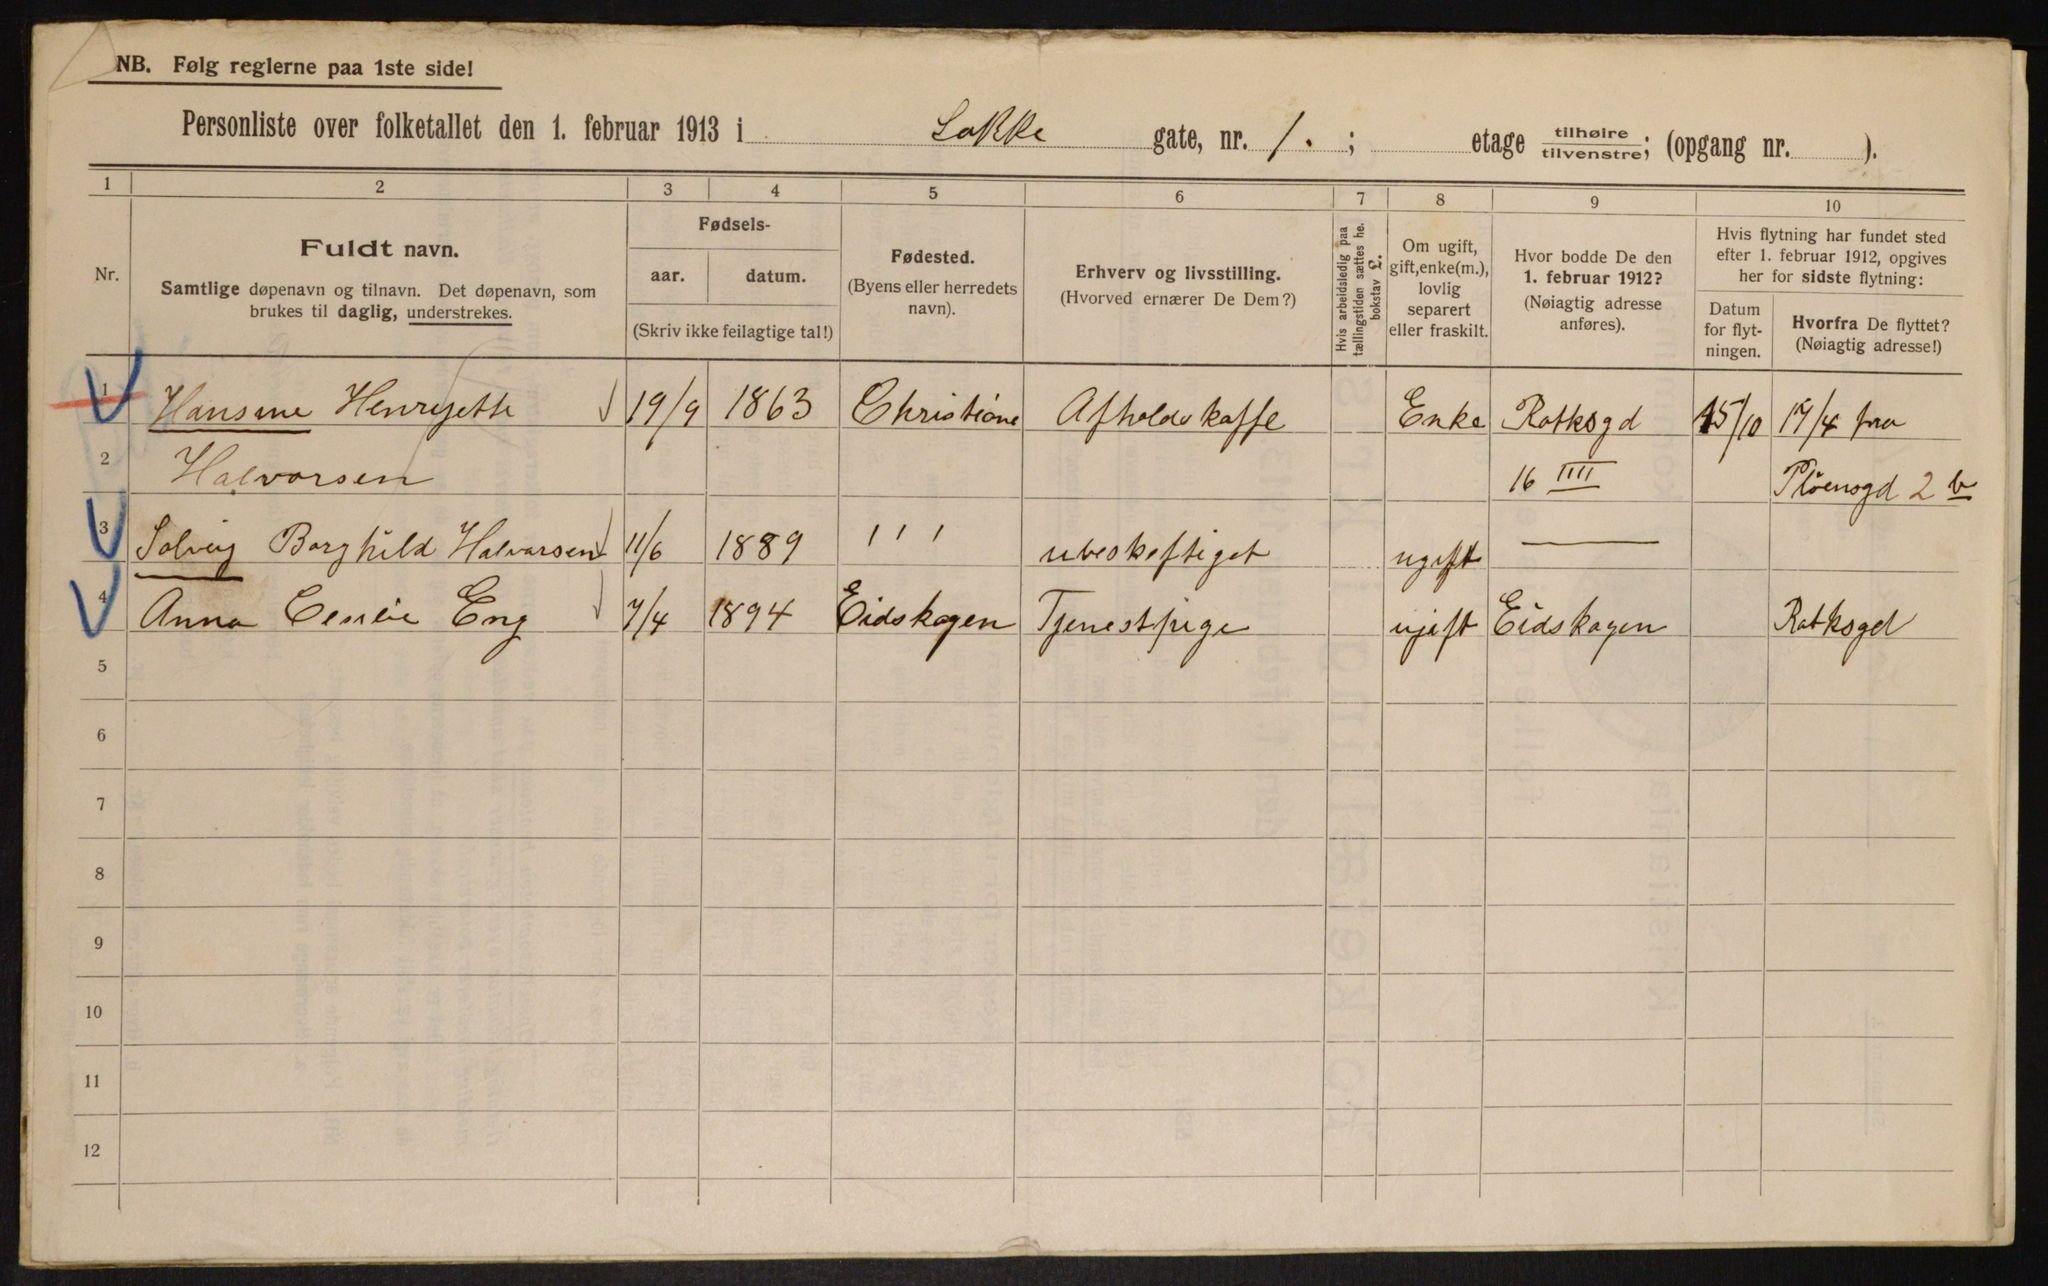 NB. Følg reglerne paa 1ste side!
Personliste over folketallet den 1. februar 1913 i Lakke gate, nr. 1. ; etage tilhøire tilvenstre; (opgang nr. ).
1 2 3 4 5 6 7 8 9 10
Nr.
Fuldt navn.
Samtlige døpenavn og tilnavn. Det døpenavn, som
brukes til daglig, understrekes.
Fødsels-
aar. datum.
(Skriv ikke feilagtige tal!)
Fødested.
(Byens eller herredets
navn).
Erhverv og livsstilling.
(Hvorved ernærer De Dem?)
Hvis arbeidsledig paa
tællingstiden sættes he.
bokstav £.
Om ugift,
gift, enke(m.),
lovlig
separert
eller fraskilt.
Hvor bodde De den
1. februar 1912?
(Nøiagtig adresse
anføres).
Hvis flytning har fundet sted
efter 1. februar 1912, opgives
her for sidste flytning:
Datum
for flyt-
ningen.
Hvorfra De flyttet?
(Nøiagtig adresse!)
1 Hansine Henryette 19/9 1863 Christiane Afholdskaffe Enke Ratksgd 15/10 17/4 fra
2 Halvorsen 16 IIII Pløensgd 2 b
3 Solveig Borghild Halvorsen 11/6 1889 ''' ubeskeftiget ugift —
4 Anna Eng 7/4 1894 Eidskogen Tjenestpige ugift Eidskogen Ratksgd
5
6
7
8
9
10
11
12